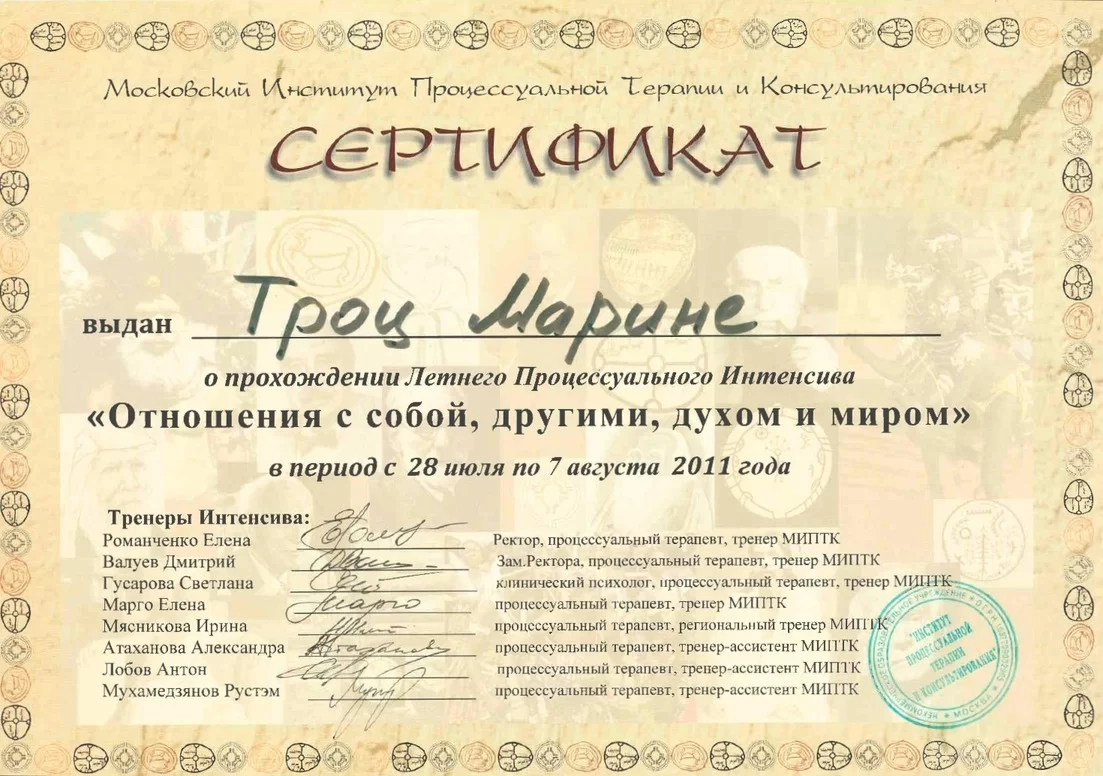 Московский Институт Процессуальной Терапии и Консультирования
СЕРТИФИКАТ
выдан Троц Марине
о прохождении Летнего Процессуального Интенсива
«Отношения с собой, другими, духом и миром»
в период с 28 июля по 7 августа 2011 года
Тренеры Интенсива:
Романченко Елена Ректор, процессуальный терапевт, тренер МИПТК
Валуев Дмитрий Зам.Ректора, процессуальный терапевт, тренер МИПТК
Гусарова Светлана клинический психолог, процессуальный терапевт, тренер МИПТК
Марго Елена Марго процессуальный терапевт, тренер МИПТК
Мясникова Ирина процессуальный терапевт, региональный тренер МИПТК
Атаханова Александра процессуальный терапевт, тренер-ассистент МИПТК
Лобов Антон процессуальный терапевт, тренер-ассистент МИПТК
Мухамедзянов Рустэм процессуальный терапевт, тренер-ассистент МИПТК
"ИНСТИТУТ
ПРОЦЕССУАЛЬНОЙ
ТЕРАПИИ
И КОНСУЛЬТИРОВАНИЯ"
ОБРАЗОВАТЕЛЬНОЕ УЧРЕЖДЕНИЕ * ОГРН
* МОСКВА *